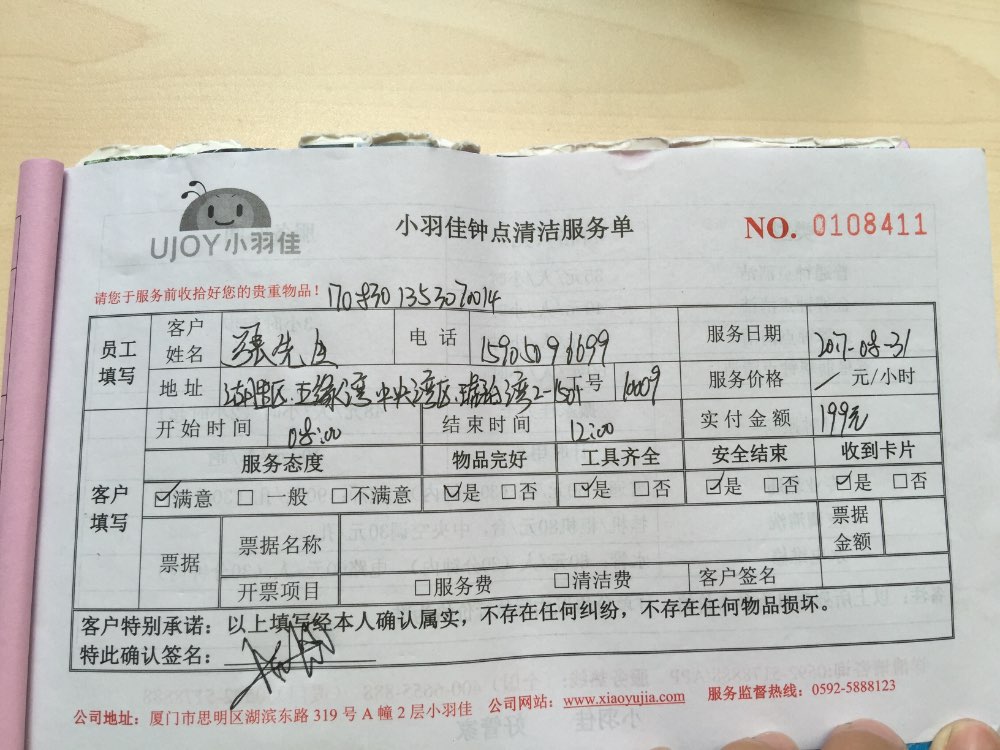 UJOY小羽佳
小羽佳钟点清洁服务单
NO. 0108411
请您于服务前收拾好您的贵重物品！
员工填写 客户姓名 张先生 电话 15905096699 服务日期 2017-08-31
地址 湖里区 五缘湾 中央湾区 号 1009 服务价格 元/小时
客户填写 开始时间 08:00 结束时间 12:00 实付金额 199元
服务态度 物品完好 工具齐全 安全结束 收到卡片
☑满意 □一般 □不满意 ☑是 □否 ☑是 □否 ☑是 □否 ☑是 □否
票据 票据名称 票据金额
开票项目 □服务费 □清洁费 客户签名
客户特别承诺：以上填写经本人确认属实，不存在任何纠纷，不存在任何物品损坏。
特此确认签名：
公司地址：厦门市思明区湖滨东路 319 号 A 幢 2 层小羽佳 公司网站：www.xiaoyujia.com 服务监督热线：0592-5888123